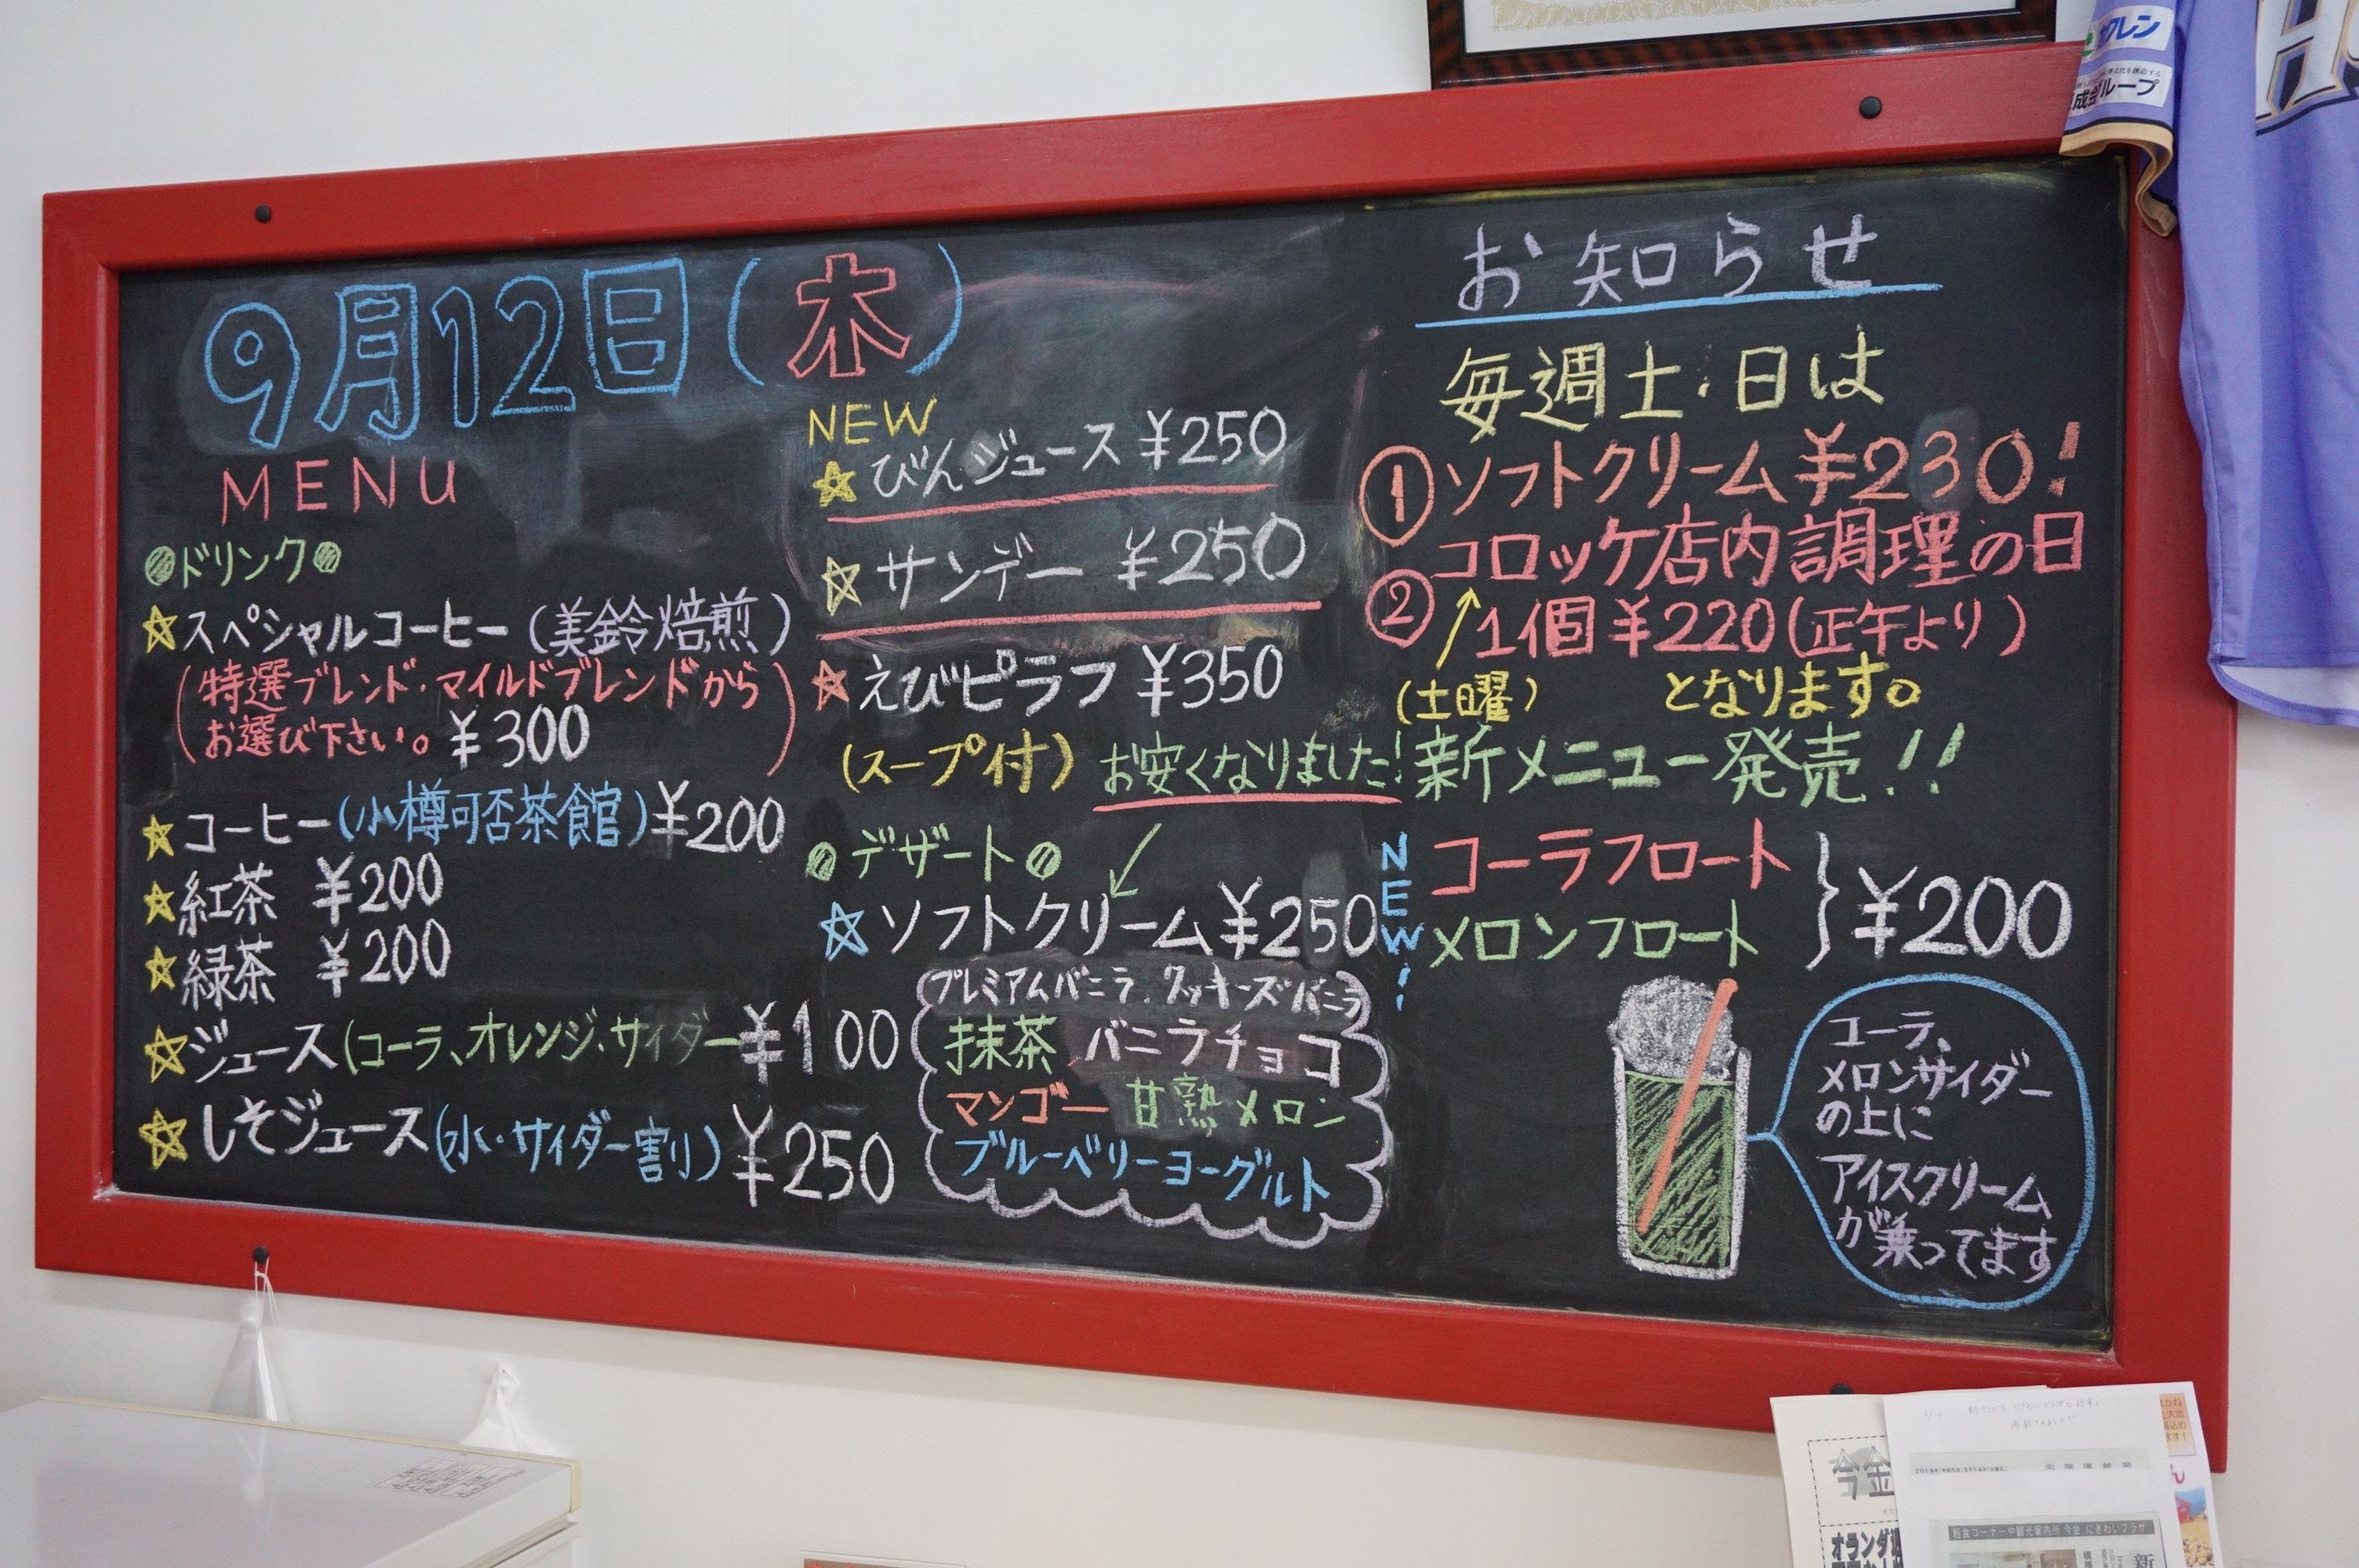 9月12日(木)
MENU
●ドリンク●
☆スペシャルコーヒー(美鈴焙煎)
(特選ブレンド・マイルドブレンドから
お選び下さい。¥300)
☆コーヒー(小樽可否茶館)¥200
☆紅茶 ¥200
☆緑茶 ¥200
☆ジュース(コーラ、オレンジ、サイダー ¥100
☆しそジュース(水・サイダー割り)¥250
NEW
☆びんジュース ¥250
☆サンデー ¥250
☆えびピラフ ¥350
(スープ付)
お安くなりました!
●デザート●
☆ソフトクリーム¥250
プレミアムバニラ、クッキーズバニラ
抹茶 バニラチョコ
マンゴー 甘熟メロン
ブルーベリーヨーグルト
お知らせ
毎週土・日は
①ソフトクリーム¥230!
②コロッケ店内調理の日
1個¥220(正午より)
(土曜) となります。
新メニュー発売!!
NEW!
コーラフロート
メロンフロート
}¥200
コーラ、
メロンサイダー
の上に
アイスクリーム
が乗ってます
ホクレン
文化を創造する
成会グループ
今金
オランダ
軽食コーナーや観光案内所 今金 にぎわいプラザ
新